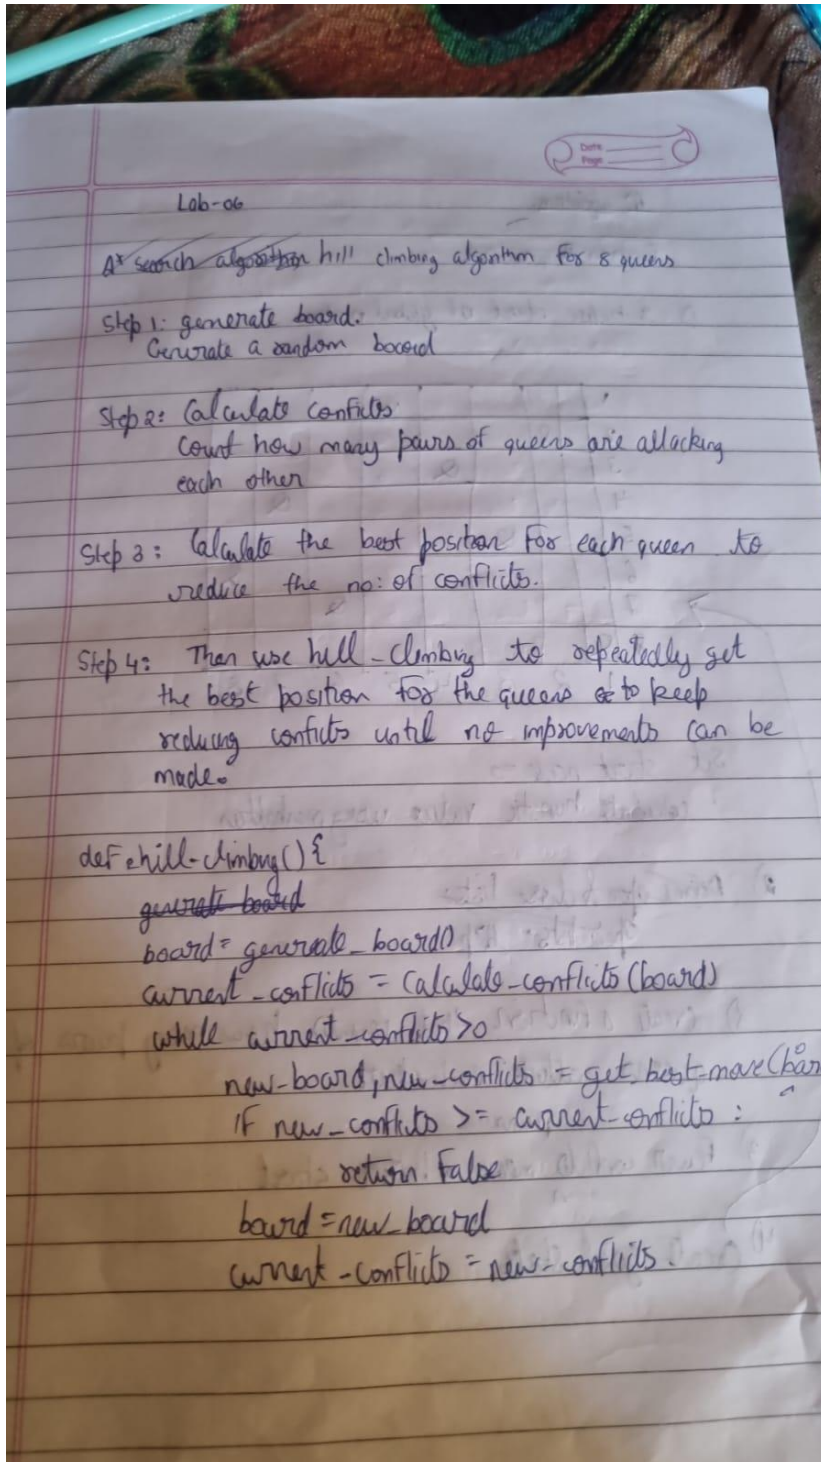 Date
Page
Lab-06
A* search algorithm hill climbing algorithm for 8 queens
Step 1: generate board.
Generate a random board
Step 2: Calculate conflicts
Count how many pairs of queens are attacking
each other
Step 3: Calculate the best position for each queen to
reduce the no: of conflicts.
Step 4: Then use hill-climbing to repeatedly get
the best position for the queens to keep
reducing conflicts until no improvements can be
made.
def hill-climbing(){
generate board
board = generate_board()
current_conflicts = calculate_conflicts(board)
while current_conflicts>0
new-board, new-conflicts = get_best-move(
if new_conflicts >= current-conflicts :
return False
board = new_board
current-conflicts = new-conflicts.